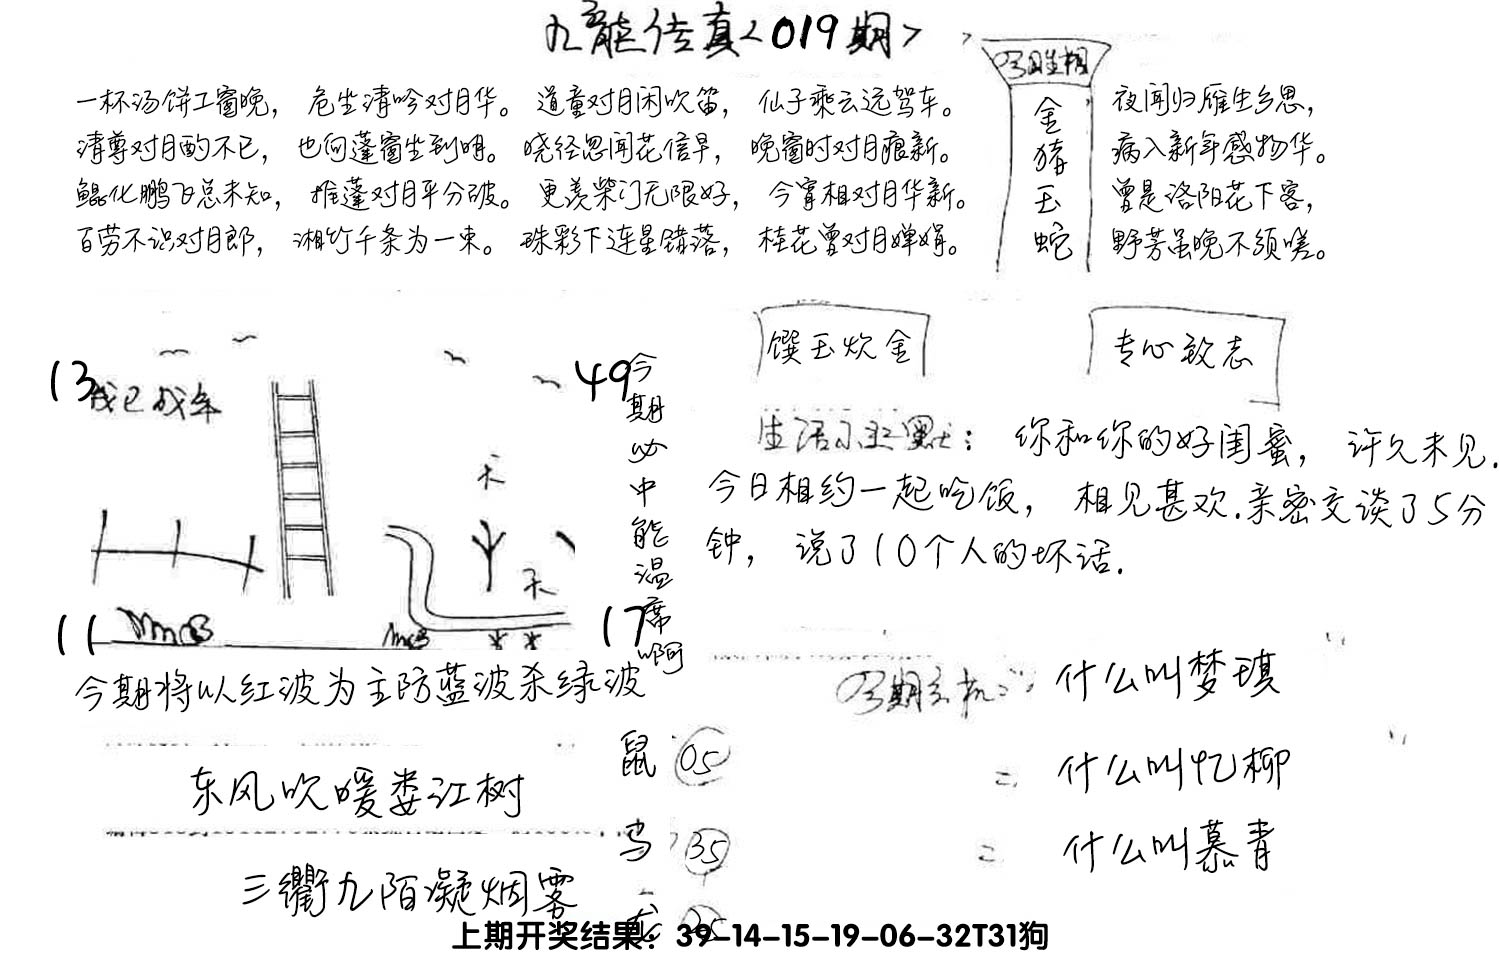 九龙传真<019期>
今日生相
金猪玉蛇
一杯汤饼工窗晚， 危坐清吟对月华。 道童对月闲吹笛， 仙子乘云远驾车。
清尊对月酌不已， 也向蓬窗坐到明。 晓径思闻花信早， 晚窗时对月痕新。
鲲化鹏飞总未知， 推蓬对月平分破。 更羡柴门无限好， 今宵相对月华新。
百劳不识对月郎， 湘竹千条为一束。 珠彩下连星错落， 桂花曾对月婵娟。
夜闻归雁生乡思，
病入新年感物华。
曾是洛阳花下客，
野芳虽晚不须嗟。
馔玉炊金
专心致志
13
49
天
天
11
17
今期必中能温席啊
今期将以红波为主防蓝波杀绿波
生活小幽默： 你和你的好闺蜜， 许久未见.
今日相约一起吃饭， 相见甚欢.亲密交谈了5分
钟， 说了10个人的坏话.
今期玄机： 什么叫梦琪
二 什么叫忆柳
二 什么叫慕青
东风吹暖娄江树
三衢九陌凝烟雾
鼠 05
鸡 35
上期开奖结果：39-14-15-19-06-32T31狗